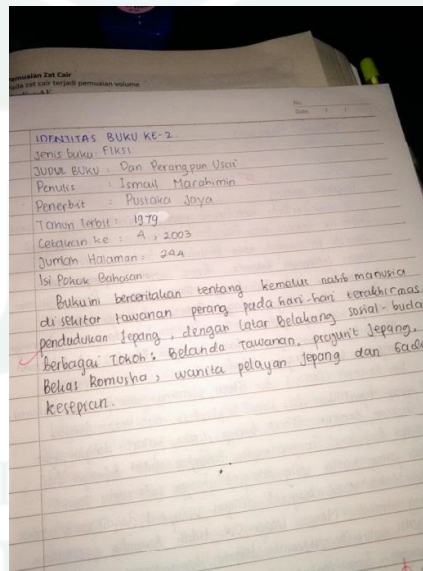 emuaian Zat Cair
ada zat cair terjadi pemuaian volume
No.
Date. / /
IDENTITAS BUKU KE-2.
Jenis buku: FIKSI
JUDUL BUKU : Dan Perangpun Usai
Penulis : Ismail Marahimin
Penerbit : Pustaka Jaya
Tahun terbit : 1979
Cetakan ke : 4, 2003
Jumlah Halaman : 244
Isi Pokok Bahasan :
Buku ini berceritakan tentang kemelut nasib manusia
di sekitar tawanan perang pada hari-hari terakhir mas
pendudukan Jepang, dengan latar Belakang sosial-buda
Berbagai Tokoh: Belanda Tawanan, prajurit Jepang,
Bekas Romusha, wanita pelayan Jepang dan Gadi
kesepian.